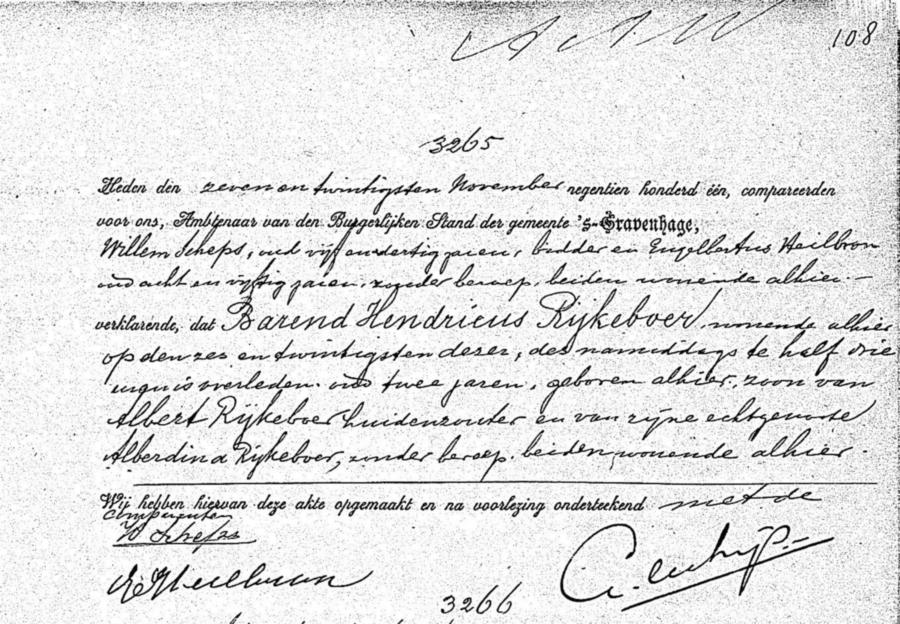 108
3265
Heden den zeven en twintigsten November negentien honderd één, compareerden
voor ons, Ambtenaar van den Burgerlijken Stand der gemeente 's-Gravenhage,
Willem Scheps, oud vijf en dertig jaren, bidder en Engelbertus Heilbron
oud acht en vijftig jaren, zonder beroep, beiden wonende alhier.—
verklarende, dat Barend Hendricus Rijkeboer, wonende alhier
op den zes en twintigsten dezer, des namiddags te half drie
ure, is overleden, oud twee jaren, geboren alhier, zoon van
Albert Rijkeboer huidenzouter en van zijne echtgenoote
Alberdina Rijkeboer, zonder beroep, beiden wonende alhier.
Wij hebben hiervan deze akte opgemaakt en na voorlezing onderteekend met de
comparanten
W Scheps
E Heilbron
3266